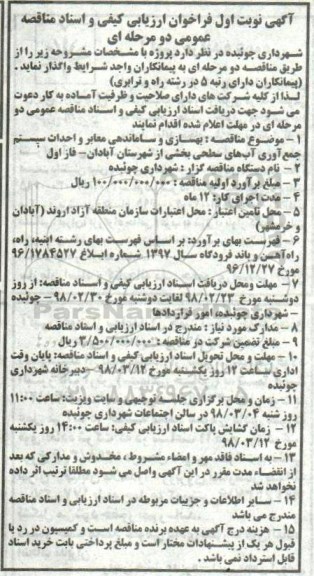 آگهی نوبت اول فراخوان ارزیابی کیفی و اسناد مناقصه
عمومی دو مرحله ای
شهرداری چوئبده در نظر دارد پروژه با مشخصات مشروحه زیر را از
طریق مناقصه دو مرحله ای به پیمانکاران واجد شرایط واگذار نماید.
(پیمانکاران دارای رتبه ۵ در رشته راه و ترابری)
لذا از کلیه شرکت های دارای صلاحیت و ظرفیت آماده به کار دعوت
می شود جهت دریافت اسناد ارزیابی کیفی و اسناد مناقصه عمومی دو
مرحله ای در مهلت اعلام شده اقدام نمایند
۱- موضوع مناقصه : بهسازی و ساماندهی معابر و احداث سیستم
جمع آوری آب های سطحی بخشی از شهرستان آبادان- فاز اول
۲- نام دستگاه مناقصه گزار : شهرداری چوئبده
۳- مبلغ برآورد اولیه مناقصه : ۱۰۰/۰۰۰/۰۰۰/۰۰۰ ریال
۴- مدت اجرای کار: ۱۲ ماه
۵- محل تامین اعتبار : محل اعتبارات سازمان منطقه آزاد اروند (آبادان
و خرمشهر)
۶- فهرست بهای برآورد: بر اساس فهرست بهای رشته ابنیه، راه،
راه آهن و باند فرودگاه سال ۱۳۹۷ شماره ابلاغ ۹۶/۱۷۸۴۵۲۷
مورخ ۹۶/۱۲/۲۷
۷- مهلت ومحل دریافت اسناد ارزیابی کیفی و اسناد مناقصه: از روز
دوشنبه مورخ ۹۸/۰۲/۲۳ لغایت دوشنبه مورخ ۹۸/۰۲/۳۰ – چوئبده
– شهرداری چوئبده، امور قراردادها
۸- مدارک مورد نیاز : مندرج در اسناد ارزیابی و اسناد مناقصه
۹- مبلغ تضمین شرکت در مناقصه : ۳/۵۰۰/۰۰۰/۰۰۰ ریال
۱۰- مهلت و محل تحویل اسناد ارزیابی کیفی و اسناد مناقصه: پایان وقت
اداری ساعت ۱۲ روز یکشنبه مورخ ۹۸/۰۳/۱۲ –دبیرخانه شهرداری
چوئبده
۱۱- زمان و محل برگزاری جلسه توجیهی و سایت ویزیت: ساعت ۱۱:۰۰
روز شنبه ۹۸/۰۳/۰۴ در سالن اجتماعات شهرداری چوئبده
۱۲- زمان گشایش پاکت اسناد ارزیابی کیفی: ساعت ۱۴:۰۰ روز یکشنبه
مورخ ۹۸/۰۳/۱۲
۱۳- به اسناد فاقد مهر و امضاء مشروط، مخدوش و مدارکی که بعد
از انقضاء مدت مقرر در این آگهی واصل می شود مطلقا ترتیب اثر داده
نخواهد شد
۱۴- سایر اطلاعات و جزییات مربوطه در اسناد ارزیابی و اسناد مناقصه
مندرج می باشد
۱۵- هزینه درج آگهی به عهده برنده مناقصه است و کمیسیون در رد یا
قبول هر یک از پیشنهادات مختار است و مبلغ پرداختی بابت خرید اسناد
قابل استرداد نمی باشد.